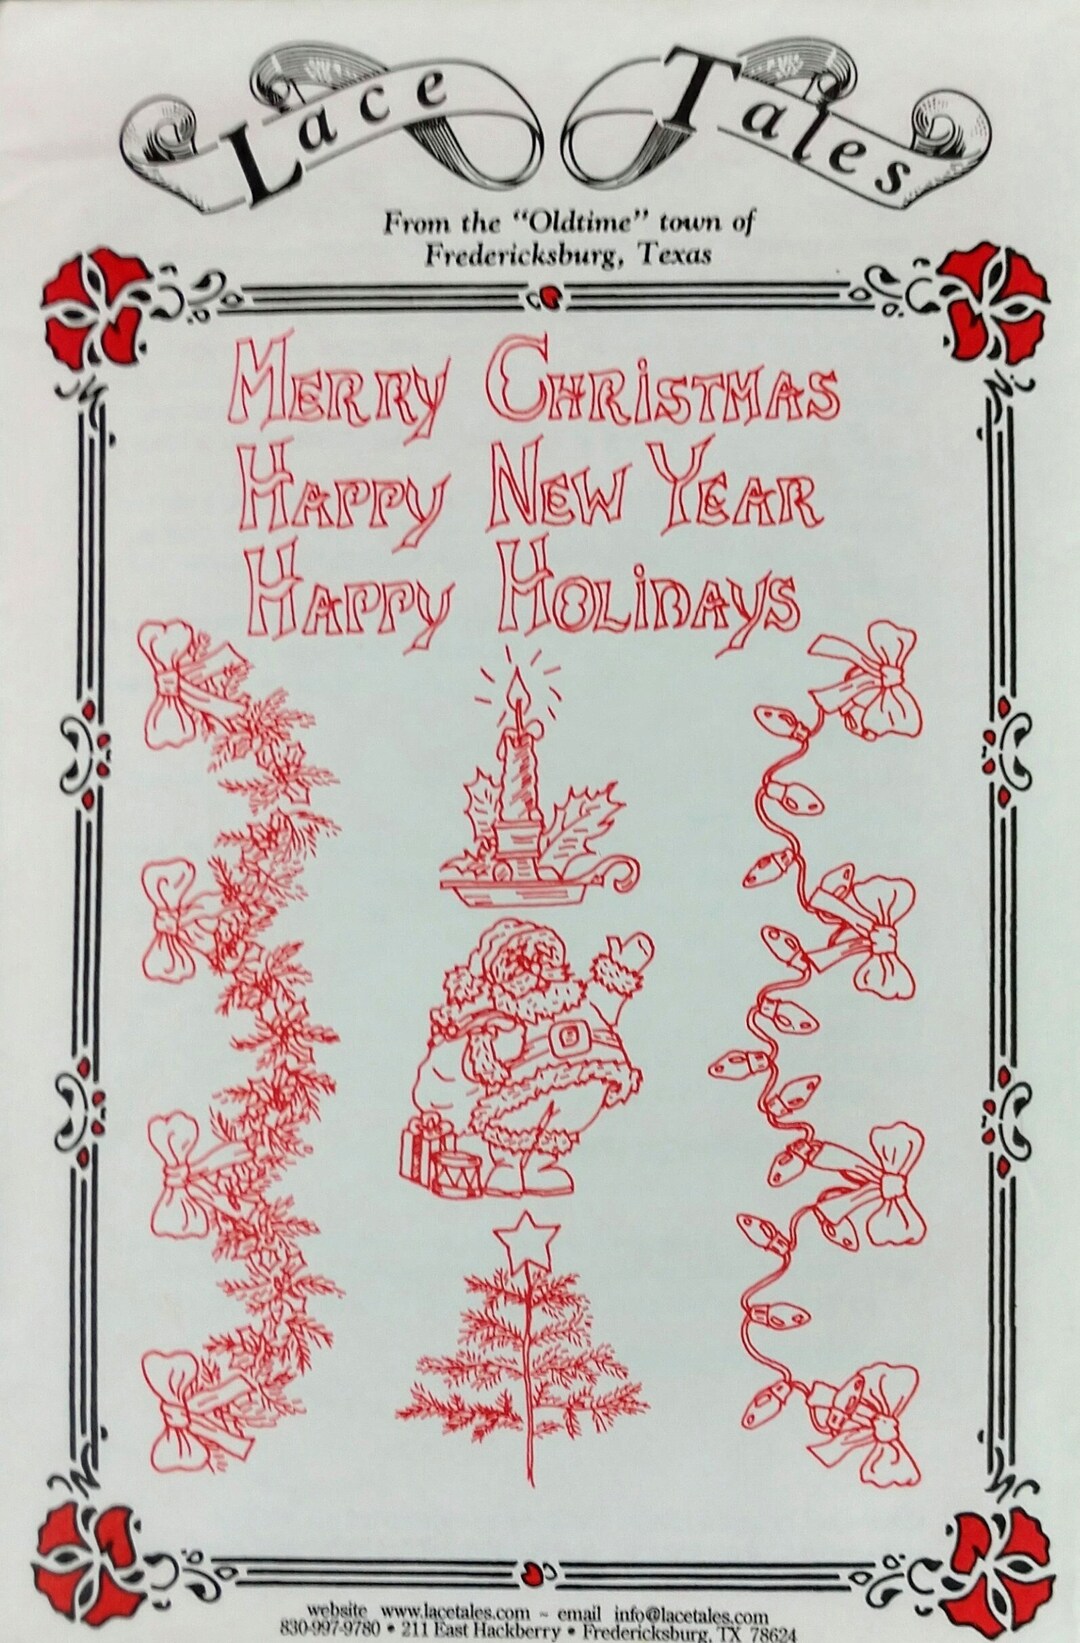 Lace Tales
From the "Oldtime" town of
Fredericksburg, Texas
MERRY CHRiSTMAS
HAPPY NEW YEAR
HAPPY HOLiDAYS
website www.lacetales.com ~ email info@lacetales.com
830-997-9780 • 211 East Hackberry • Fredericksburg, TX 78624